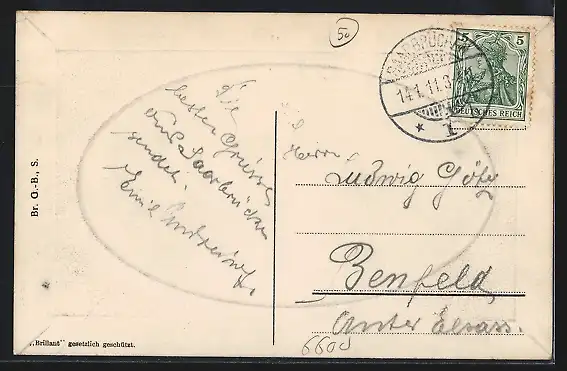 50
SAARBRÜCKEN
14.1.11.8
* 1
5 5
DEUTSCHES REICH
Die
besten Grüsse
aus Saarbrücken
sendet
Emil
Herrn
Ludwig Götz
Benfeld
Unter Elsass.
6600
Br. G.-B., S.
„Brillant" gesetzlich geschützt.